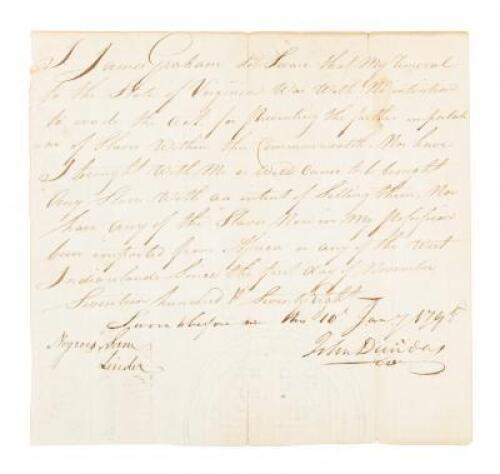 I James Graham do Swear that My removal
to the State of Virginia Was With No intention
to evade the act for Preventing the further importati
on of Slaves Within this Commonwealth, Nor have
I brought With Me or Will cause to be brought
Any Slaves With an intent of Selling them, Nor
have any of the Slaves Now in My Possession
been imported from Africa or any of the West
India Islands Since the first day of November
Seventeen hundred & Seventy Eight
Sworn to before me this 10th Jany
Negroes,
John Dundas